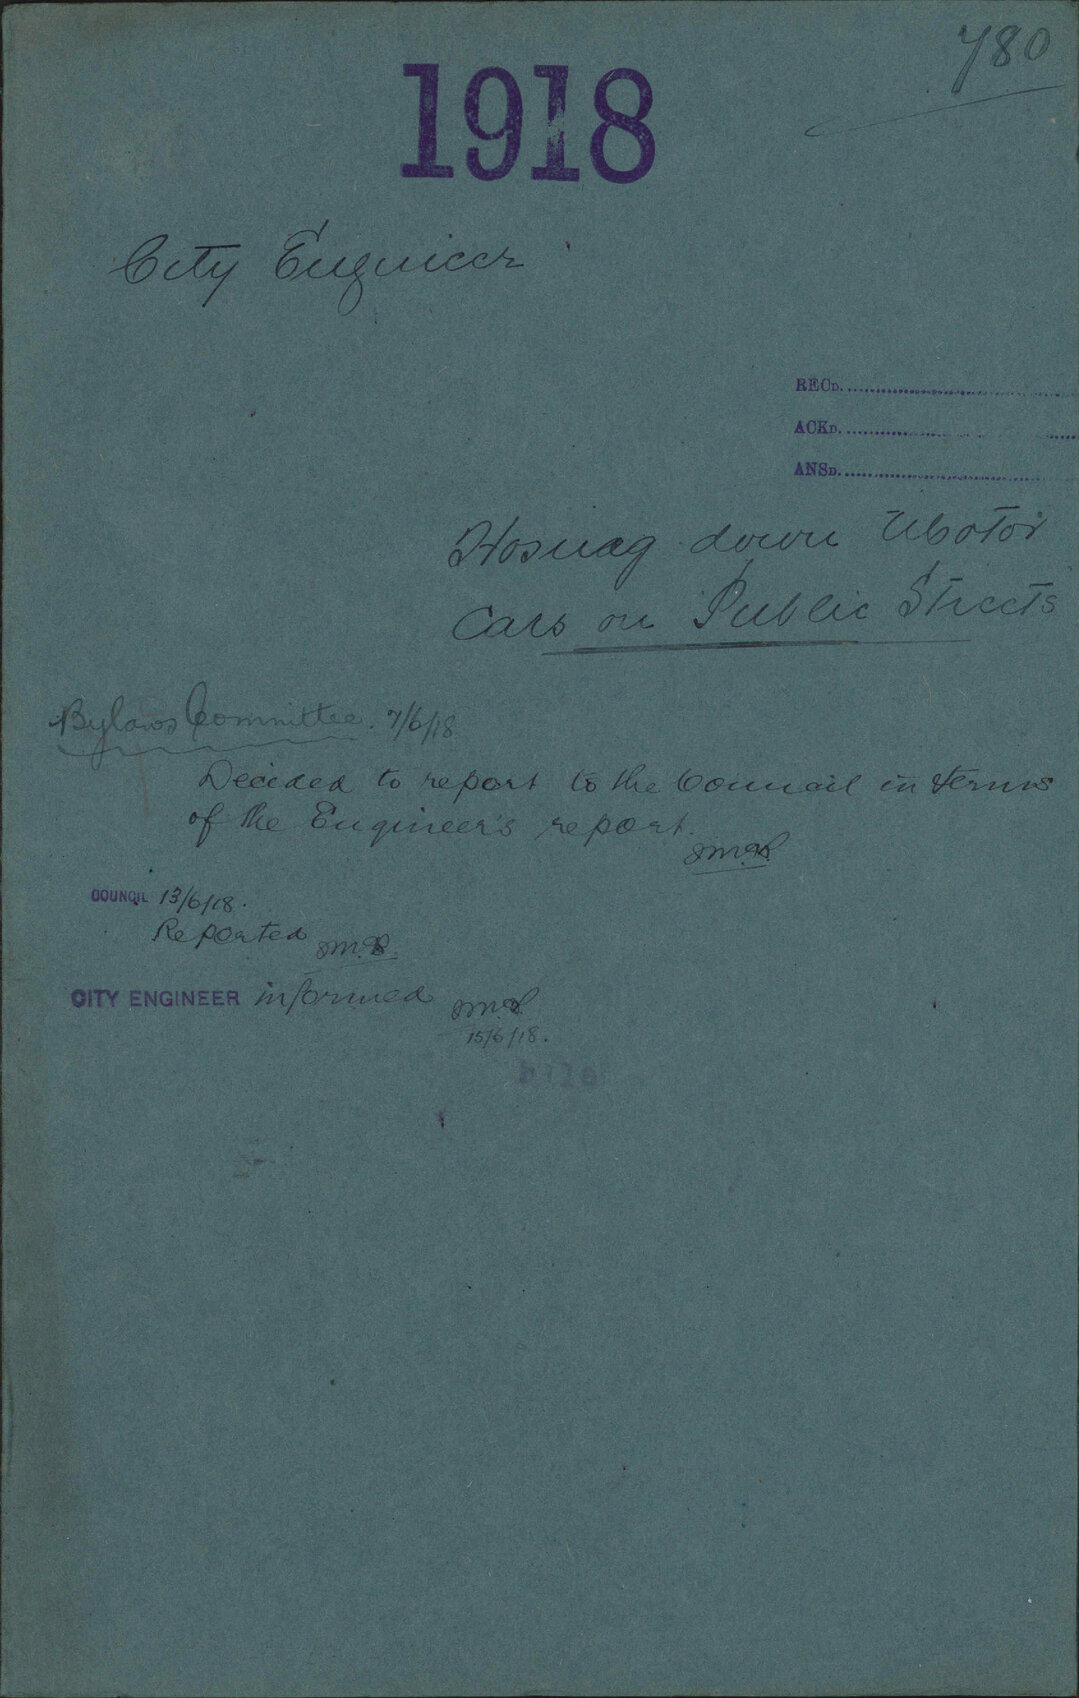 780
1918
City Engineer
RECD.
ACKD.
ANSD.
Hosing down Motor
Cars on Public Streets
Bylaws Committee. 7/6/18
Decided to report to the Council in terms
of the Engineer's report.
COUNCIL 13/6/18.
Reported
CITY ENGINEER informed
15/6/18.